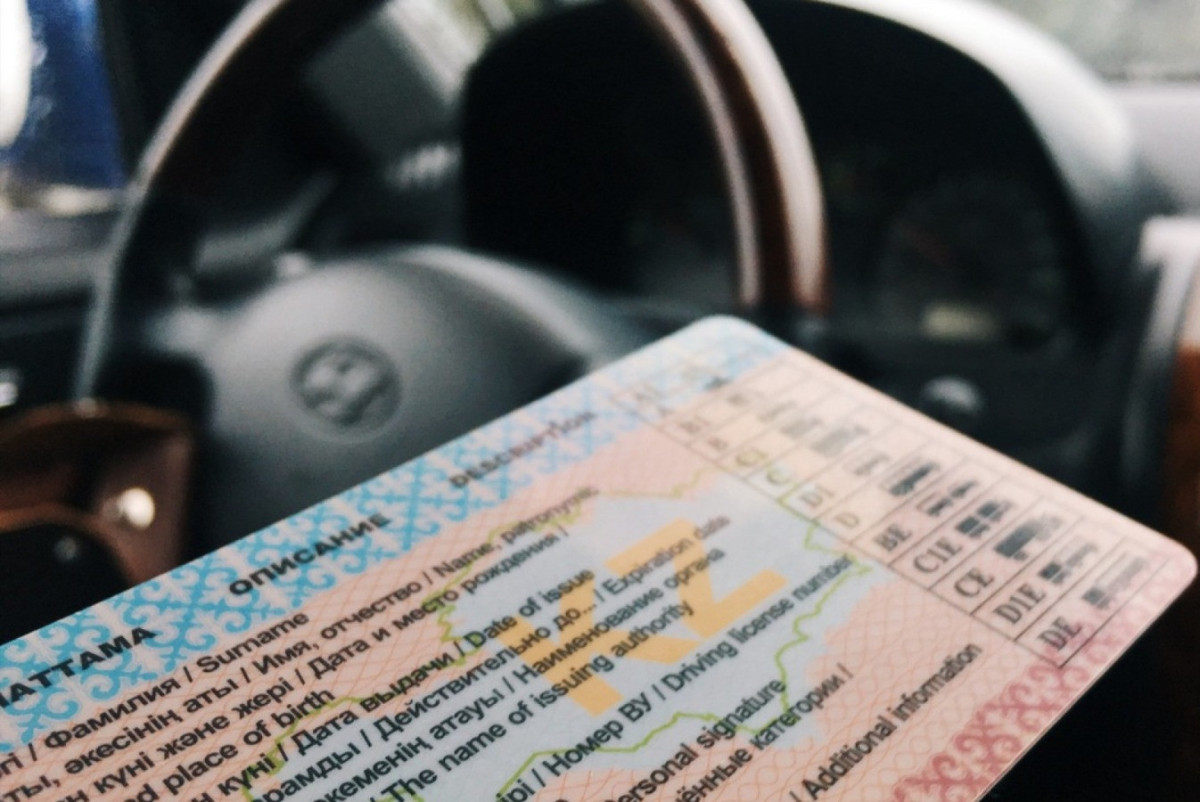 СИПАТТАМА ОПИСАНИЕ DESCRIPTION
/ Фамилия / Surname
әкесінің аты / Имя, отчество / Name, patronymic
күні және жері / Дата и место рождения /
place of birth
күні / Дата выдачи / Date of issue
/ Действительно до... / Expiration date
атауы / Наименование органа
/ The name of issuing authority
/ Номер ВУ / Driving license number
Personal signature
категории /
/ Additional information
KZ
A
B1
B
C1
C
D1
D
BE
C1E
CE
D1E
DE